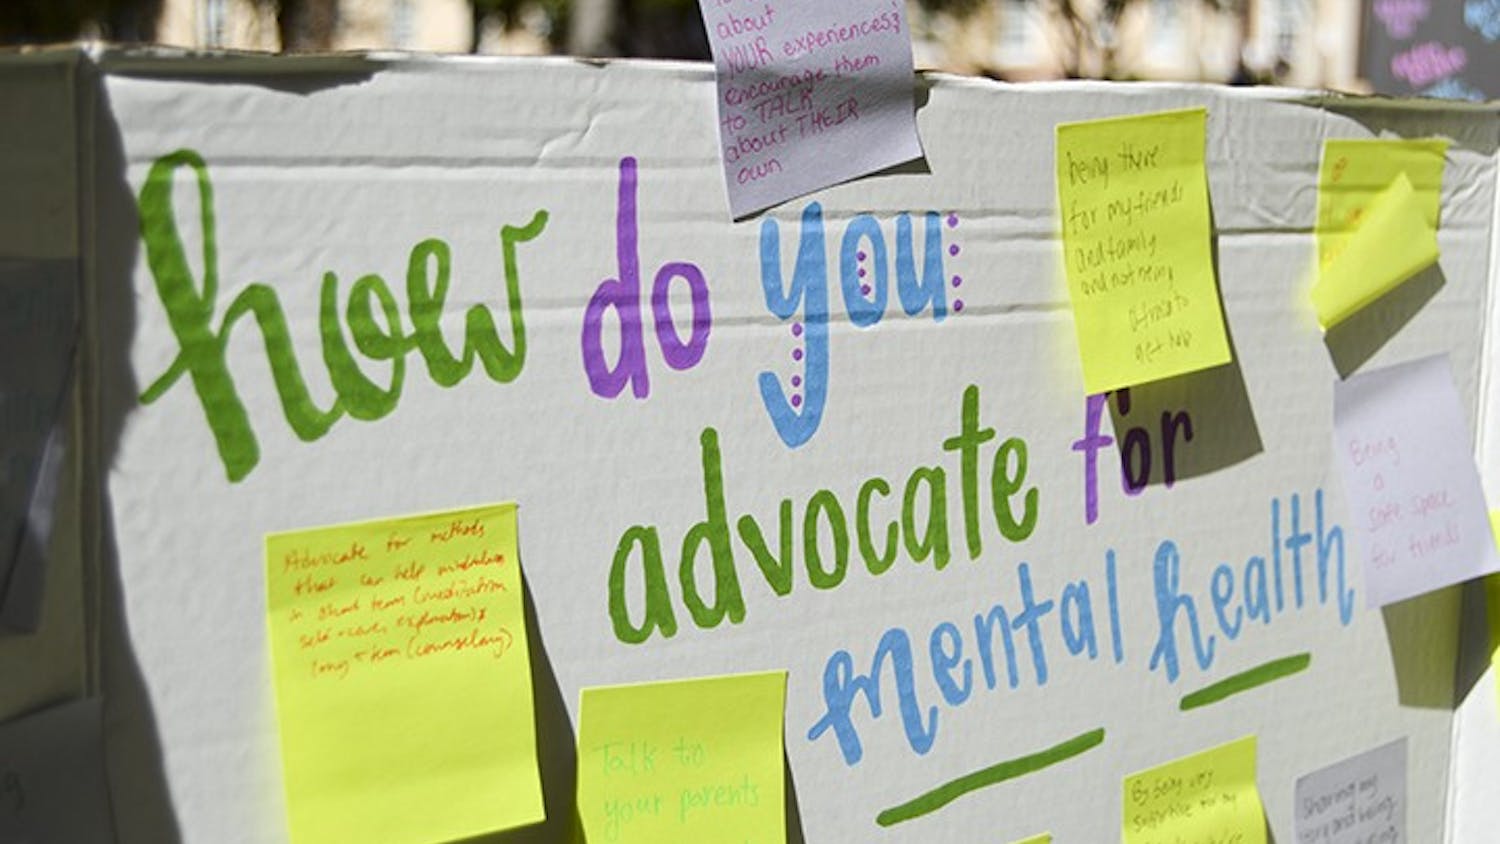 about
YOUR experiences &
encourage them
to TALK
about THEIR
own
being there
for my friends
and family
and not being
afraid to
get help
how do you
advocate for
mental health
Being
a
safe space
for friends
Advocate for methods
that can help
in short term (meditation
long term (counseling)
Talk to
your parents
By being very
supportive to my
sharing my
story and being